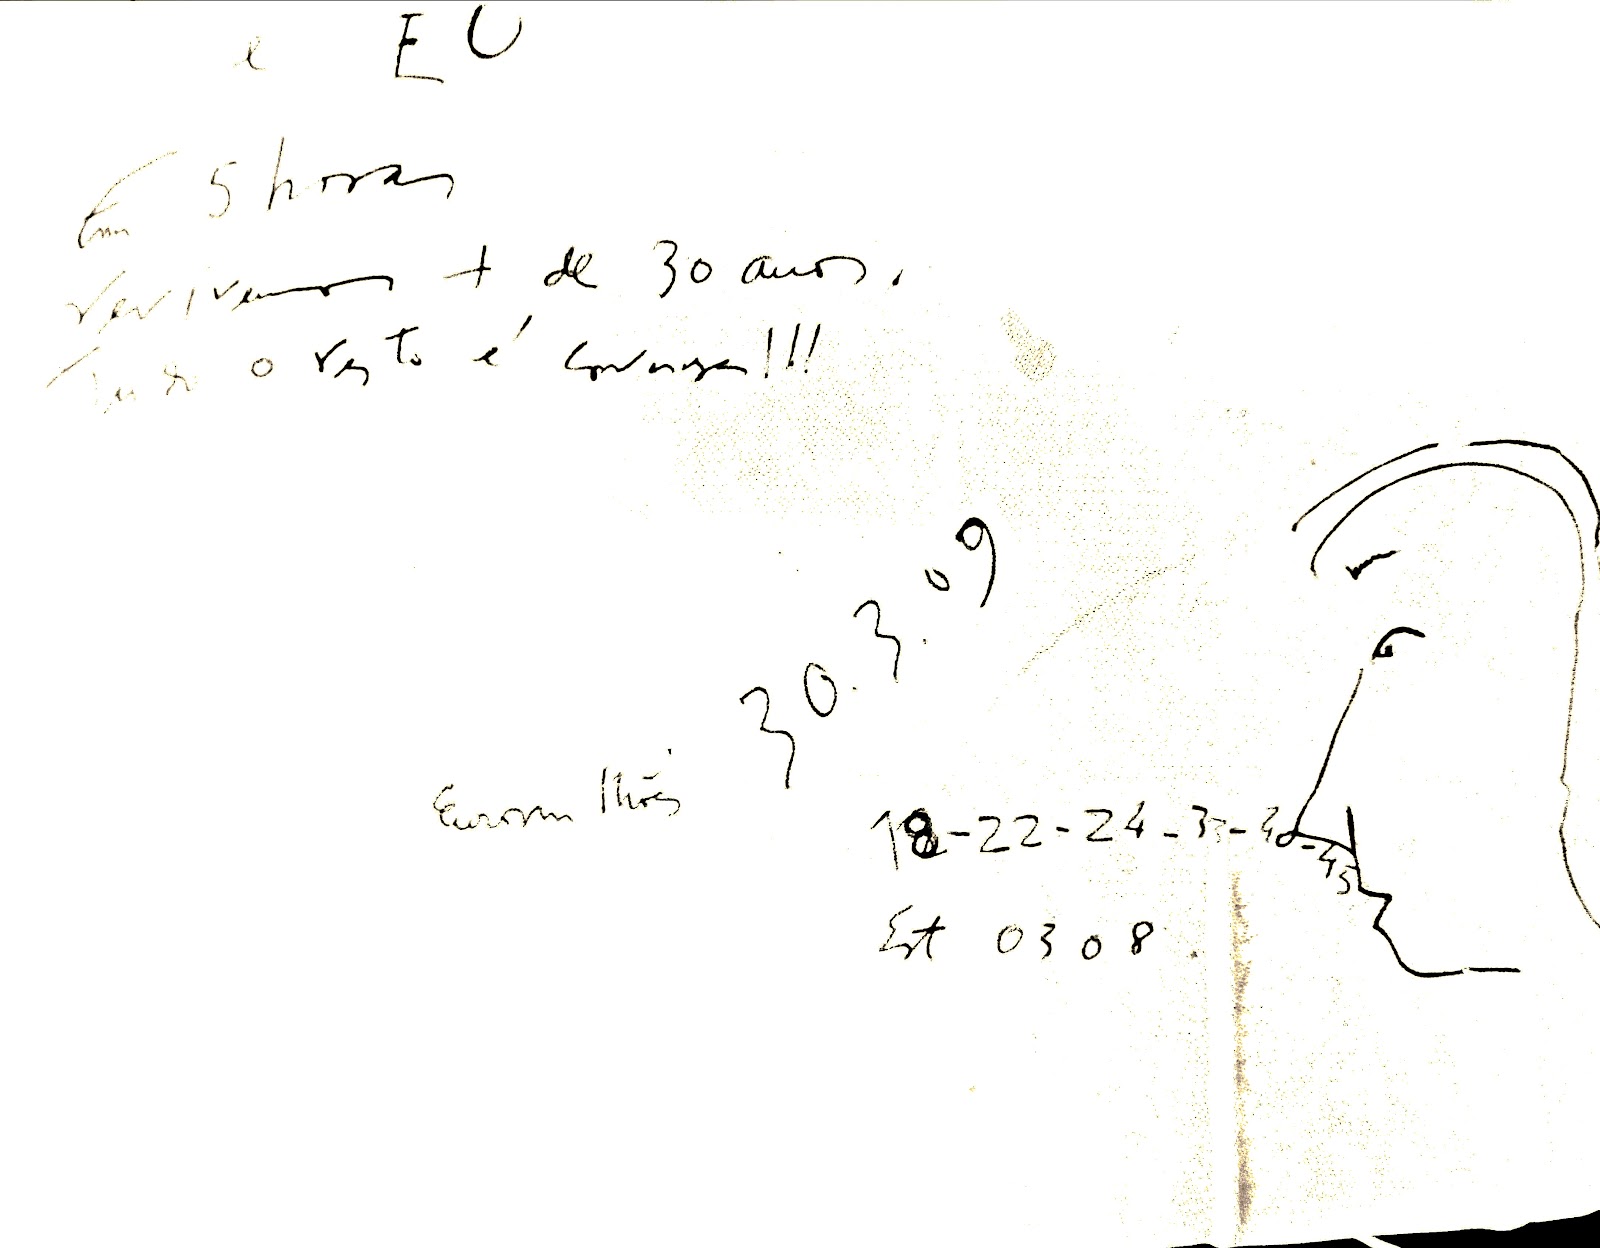 e EU
Em 5 horas
revivemos + de 30 anos.
Tudo o resto é conversa!!!
30.3.09
Euromilhões
18-22-24-33-40-45
Est 0308